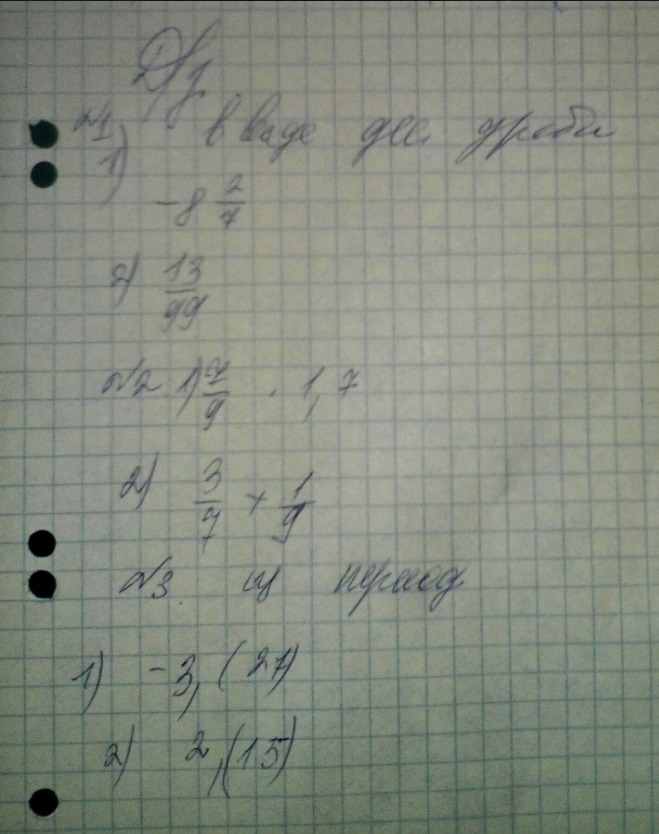 Д/з
№1 в виде дес дроби
1)
-8 2/7
2) 13/99
№2 1) 7/9 · 1,7
2) 3/7 + 1/9
№3. из период
1) -3,(27)
2) 2,(15)